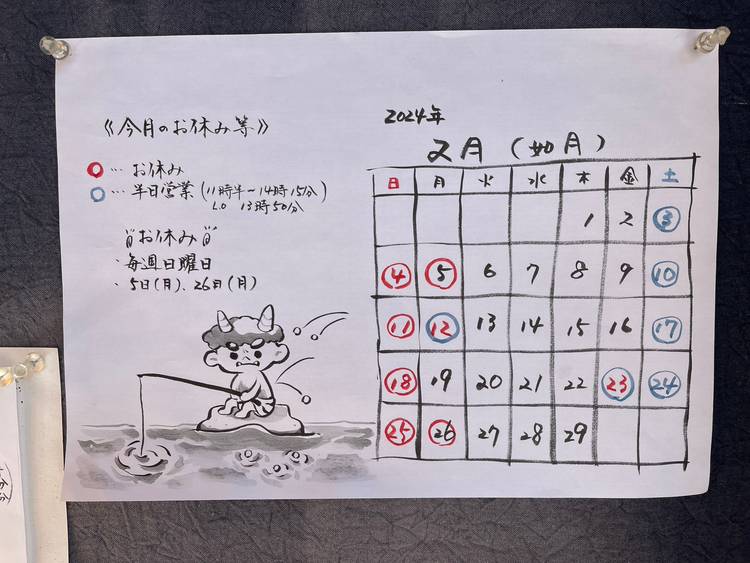 《今月のお休み等》
○… お休み
○… 半日営業(11時半~14時15分)
L.O 13時50分
お休み
・毎週日曜日
・5日(月)、26日(月)
2024年
2月(如月)
日 月 火 水 木 金 土
1 2 3
4 5 6 7 8 9 10
11 12 13 14 15 16 17
18 19 20 21 22 23 24
25 26 27 28 29